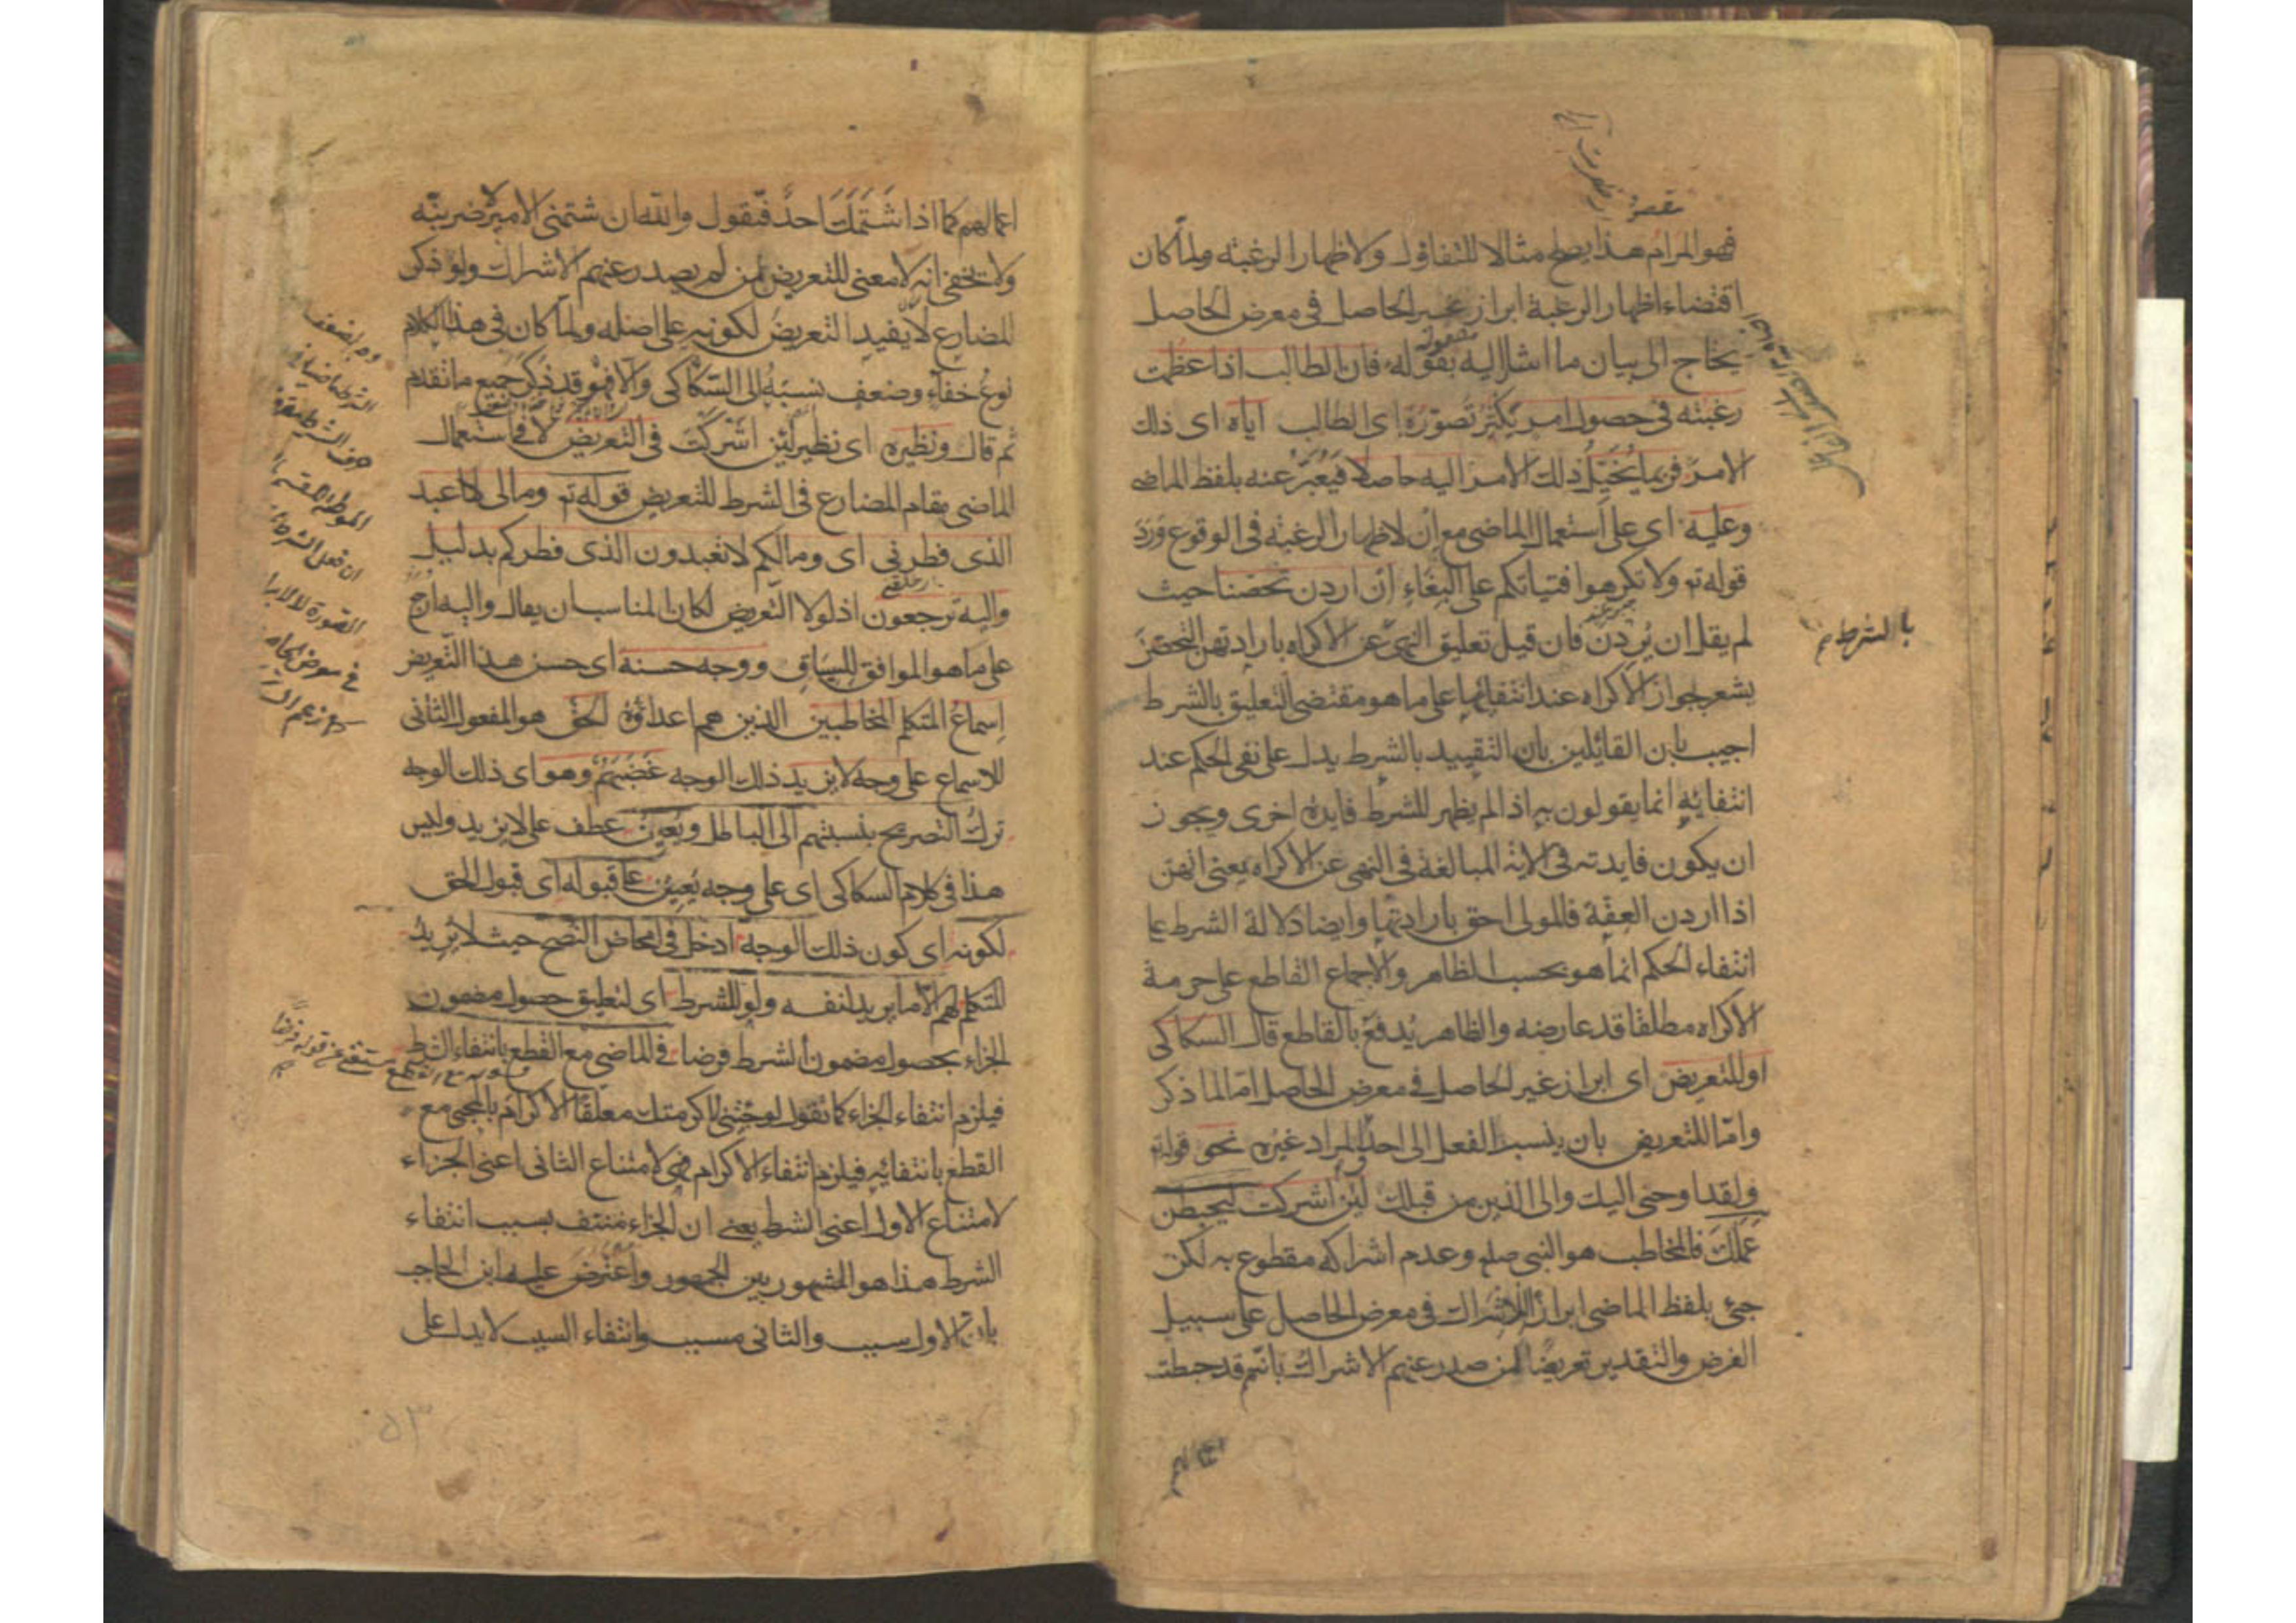 فهو المرام هذا يصلح مثالا للتفاؤل ولاظهار الرغبة ولما كان
اقتضاء اظهار الرغبة ابراز غير الحاصل فى معرض الحاصل
يحتاج الى بيان ما اشار اليه بقوله فان الطالب اذا عظمت
رغبته فى حصول امر يكثر تصوّره اى الطالب اياه اى ذلك
الامر فربما يُخَيّل ذلك الامر اليه حاصلا فيُعبّر عنه بلفظ الماضى
وعليه اى على استعمال الماضى مع ان لاظهار الرغبة فى الوقوع ورد
قوله تع ولا تكرهوا فتياتكم على البغاء ان اردن تحصنا حيث
لم يقل ان يُردن فان قيل تعليق النهى عن الاكراه بارادتهن التحصن
يشعر بجواز الاكراه عند انتفائها على ما هو مقتضى التعليق بالشرط
اجيب بان القائلين بان التقييد بالشرط يدل على نفى الحكم عند
انتفائه انما يقولون به اذا لم يظهر للشرط فايدة اخرى ويجوز
ان يكون فايدته فى الاية المبالغة فى النهى عن الاكراه يعنى انهن
اذا اردن العفة فالمولى احق بارادتها وايضا دلالة الشرط على
انتفاء الحكم انما هو بحسب الظاهر والاجماع القاطع على حرمة
الاكراه مطلقا قد عارضه والظاهر يُدفع بالقاطع قال السكاكى
او للتعريض اى ابراز غير الحاصل فى معرض الحاصل امّا لما ذكر
وامّا للتعريض بان ينسب الفعل الى احد والمراد غيره نحو قوله تع
ولقد اوحى اليك والى الذين من قبلك لئن اشركت ليحبطن
عملك فالمخاطب هو النبى صلم وعدم اشراكه مقطوع به لكن
جئ بلفظ الماضى ابرازا للاشراك فى معرض الحاصل على سبيل
الفرض والتقدير تعريضا لمن صدر عنهم الاشراك بانهم قد حبطت
بالشرط
اعمالهم
اعمالهم كما اذا شتمك احد فتقول والله ان شتمنى الامير لاضربنّه
ولا يخفى انه لا معنى للتعريض لمن لم يصدر عنهم الاشراك ولو ذكر
المضارع لا يفيد التعريض لكونه على اصله ولما كان فى هذا الكلام
نوع خفاء وضعف نسبه الى السكاكى والا فهو قد ذكر جميع ما تقدم
ثم قال ونظيره اى نظير لئن اشركت فى التعريض لا فى استعمال
الماضى مقام المضارع فى الشرط للتعريض قوله تع ومالى لا اعبد
الذى فطرنى اى وما لكم لا تعبدون الذى فطركم بدليل
واليه ترجعون اذ لولا التعريض لكان المناسب ان يقال واليه ارجع
على ما هو الموافق للسياق ووجه حسنه اى حسن هذا التعريض
اسماع المتكلم المخاطبين الذين هم اعداؤه الحق هو المفعول الثانى
للاسماع على وجه لا يزيد ذلك الوجه غضبهم وهو اى ذلك الوجه
ترك التصريح بنسبتهم الى الباطل ويُعين عطف على لا يزيد وليس
هذا فى كلام السكاكى اى على وجه يُعين على قبوله اى قبول الحق
لكونه اى كون ذلك الوجه ادخل فى امحاض النصح حيث لا يريد
المتكلم لهم الا ما يريد لنفسه ولو للشرط اى لتعليق حصول مضمون
الجزاء بحصول مضمون الشرط فرضا فى الماضى مع القطع بانتفاء الشرط
فيلزم انتفاء الجزاء كما تقول لو جئتنى لاكرمتك معلقا الاكرام بالمجئ مع
القطع بانتفائه فيلزم انتفاء الاكرام فهى لامتناع الثانى اعنى الجزاء
لامتناع الاول اعنى الشرط يعنى ان الجزاء منتف بسبب انتفاء
الشرط هذا هو المشهور بين الجمهور واعترض عليه ابن الحاجب
بان الاول سبب والثانى مسبب وانتفاء السبب لا يدل على
٥٣